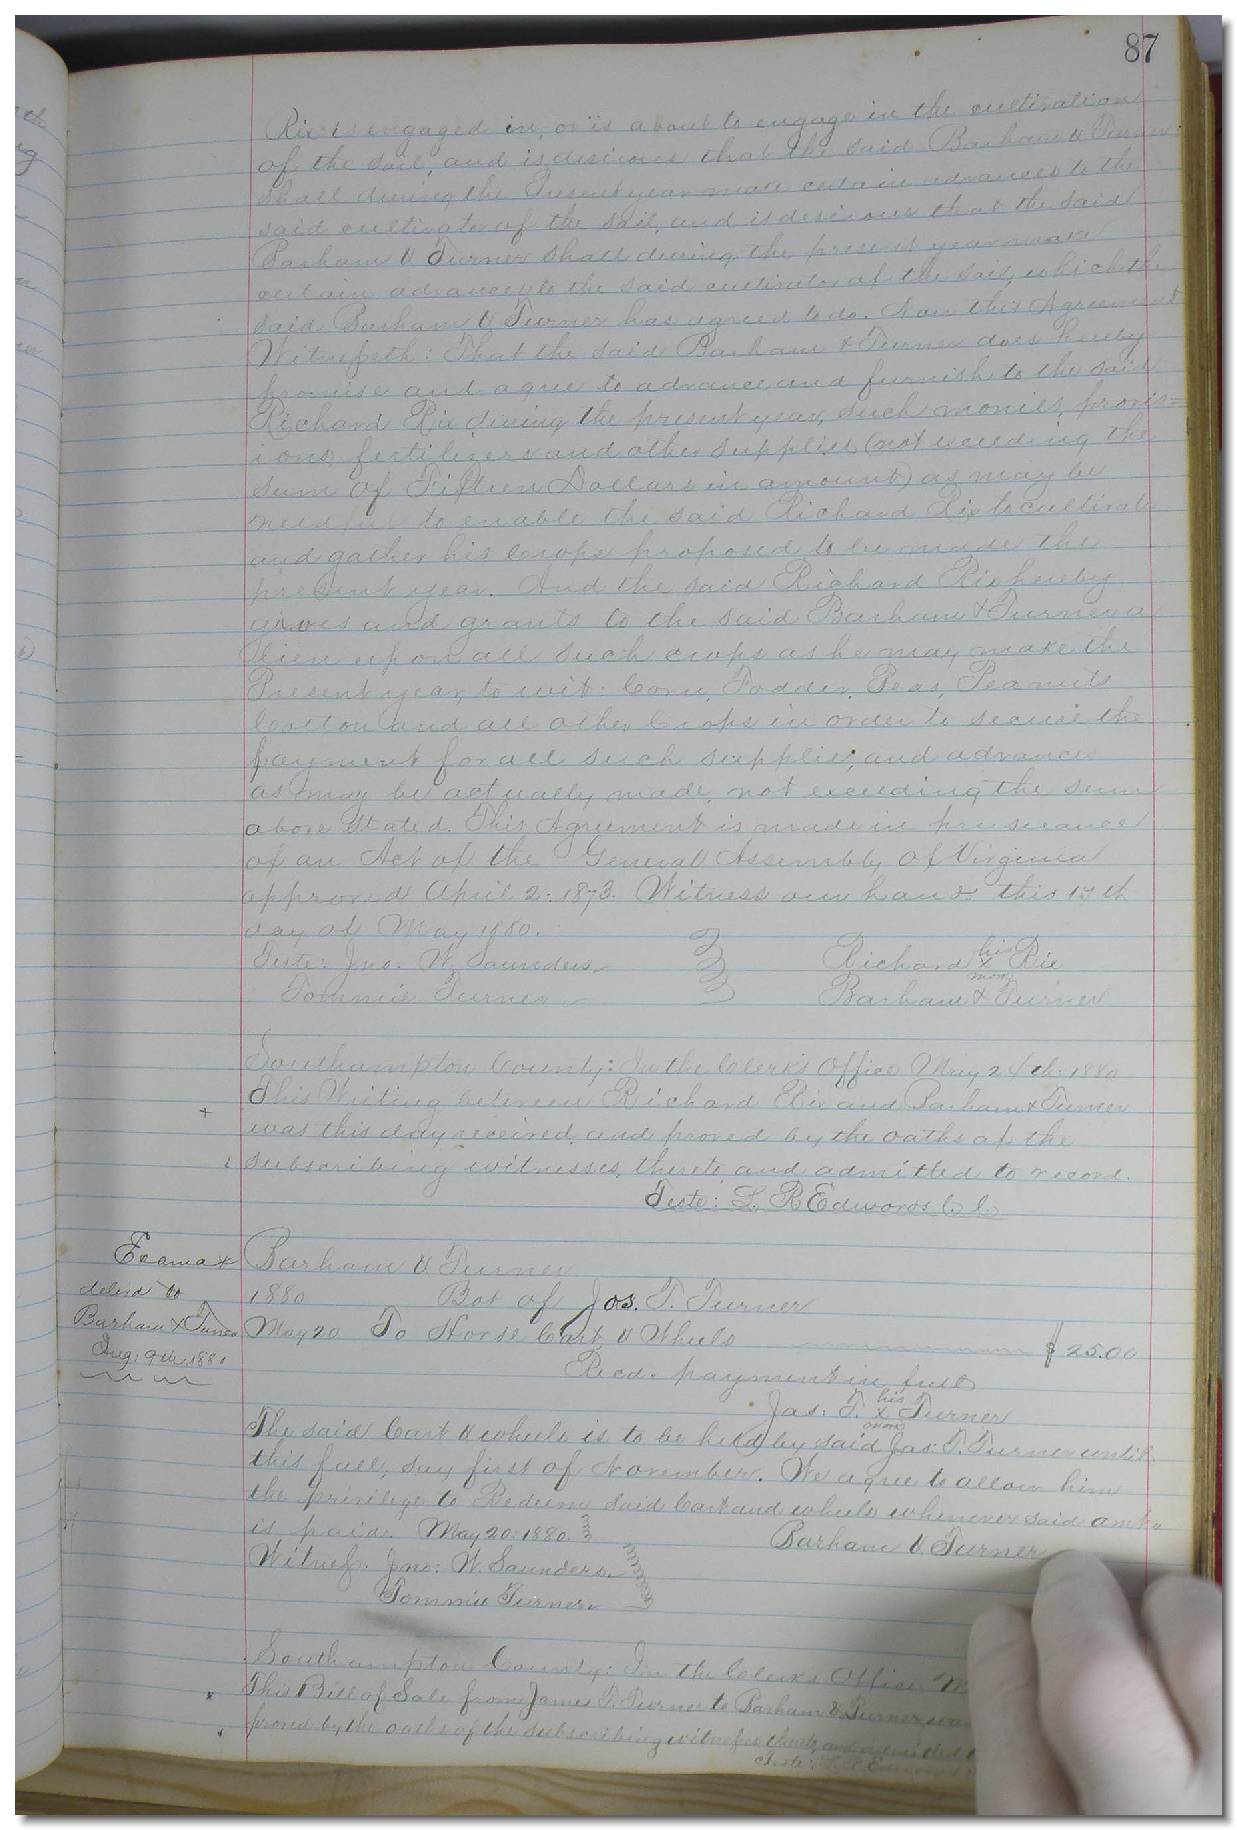 87
Rix is engaged in, or is about to engage in the cultivation
of the soil, and is desirous that the said Barham & Turner
shall during the Present year make certain advances to the
said cultivator of the soil, and is desirous that the said
Barham & Turner shall during the present year make
certain advances to the said cultivator of the soil, which the
said Barham & Turner has agreed to do. Now this Agreement
Witnesseth: That the said Barham & Turner does hereby
promise and agree to advance and furnish to the said
Richard Rix during the present year, such monies, provis=
ions, fertilizers and other supplies (not exceeding the
sum of Fifteen Dollars in amount) as may be
needful to enable the said Richard Rix to cultivate
and gather his Crops proposed to be made the
present year. And the said Richard Rix hereby
gives and grants to the said Barham & Turner a
lien upon all such crops as he may make the
Present year, to wit: Corn, Fodder, Peas, Peanuts
Cotton and all other Crops in order to secure the
payment for all such supplies, and advances
as may be actually made, not exceeding the sum
above stated. This Agreement is made in pursuance
of an Act of the General Assembly of Virginia
approved April 2. 1873. Witness our hands this 17th
day of May 1880.
Teste: Jno. W. Saunders
Richard his x mark Rix
Tommie Turner
Barham & Turner
Southampton County: In the Clerk's Office May 24th 1880
This Writing between Richard Rix and Barham & Turner
was this day received, and proved by the oaths of the
subscribing witnesses, thereto, and admitted to record.
Teste: L. R Edwards C. C.
Exama &
delivd to
Barham & Turner
Aug: 9th 1881
Barham & Turner
1880 Bot of Jas. T. Turner
May 20 To Horse Cart & Wheels $ 25.00
Recd. payment in full
Jas: T. his x mark Turner
The said Cart & wheels is to be held by said Jas: T. Turner until
this fall, say first of November. We agree to allow him
the privilege to Redeem said Cart and wheels whenever said amt.
is paid. May 20. 1880.
Barham & Turner
Witness. Jno: W. Saunders
Tommie Turner
Southampton County: In the Clerks Office M
This Bill of Sale from James T. Turner to Barham & Turner was
proved by the oaths of the subscribing witnesses thereto, and admitted t
Teste: L. R Edwards